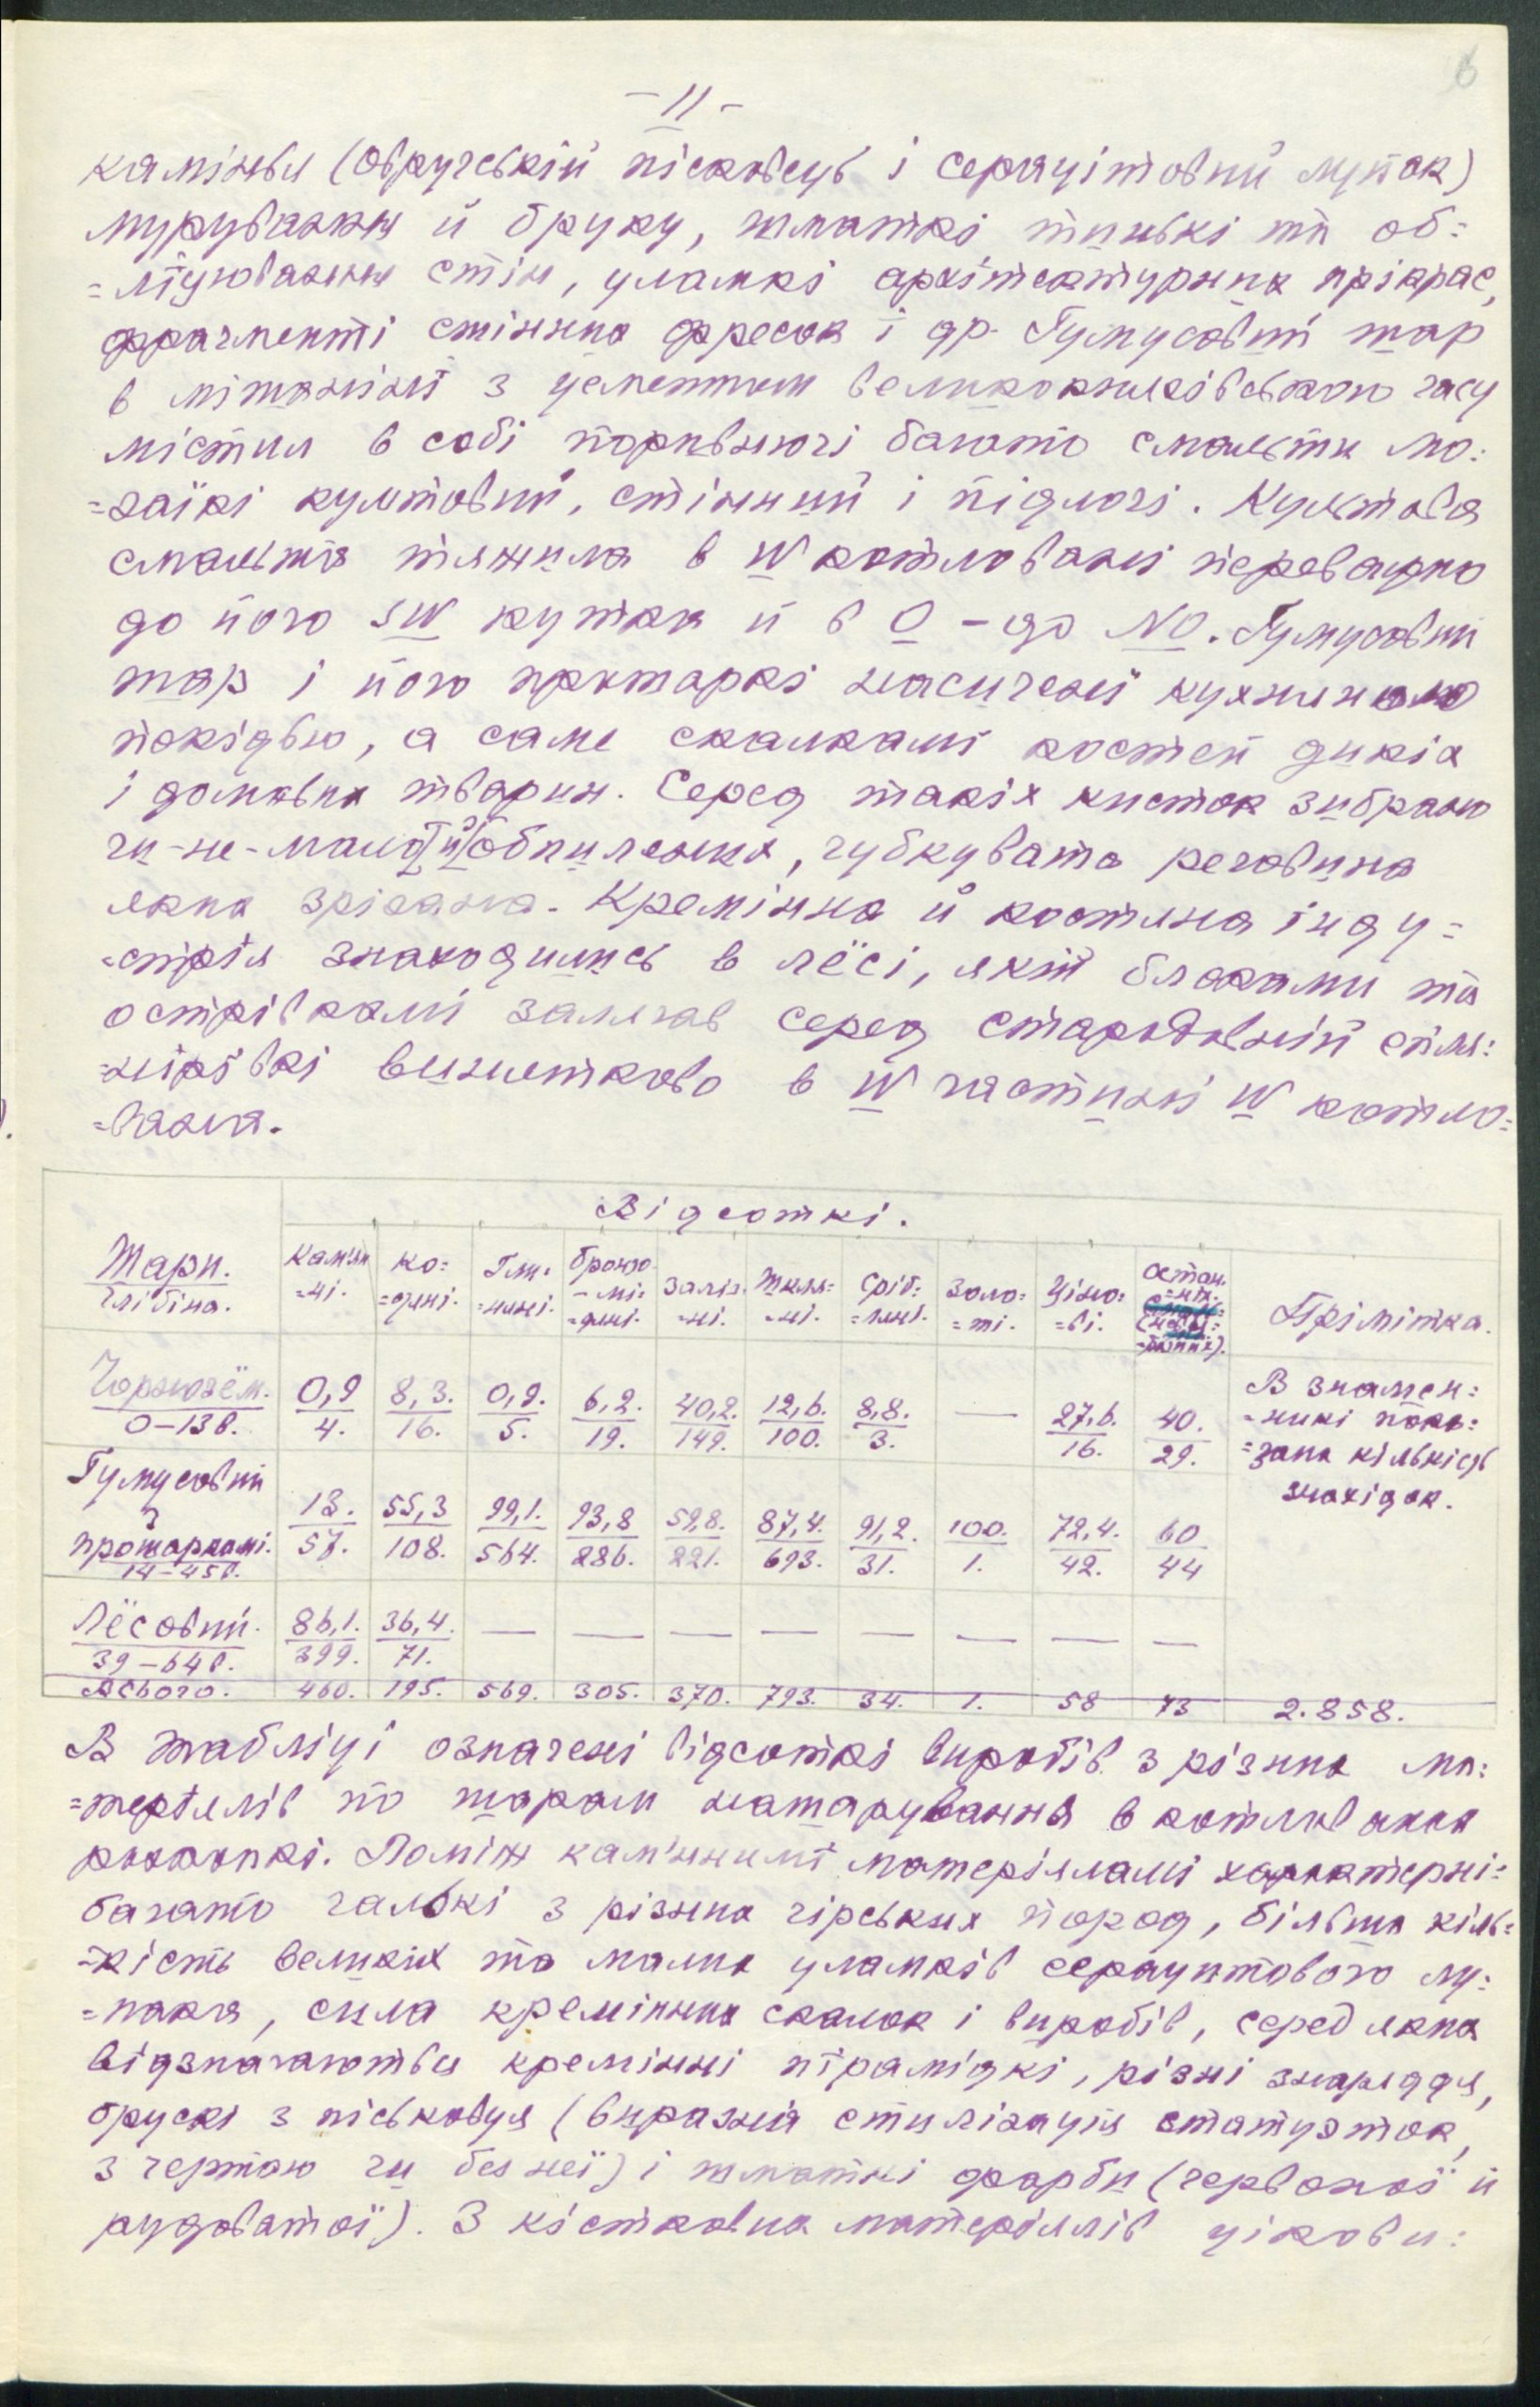 6
- 11 -
камінья (Овручській пісковець і серяцітовий лупак)
мурування й бруку, шматкі тинькі та об=
=ліцювання стін, уламкі архітектурних прікрас,
фрагменті стінних фресок і др. Гумусовий шар
в мішаніні з цементом великокнязівського часу
містил в собі порівнюючі багато смальти мо=
=заїкі культовий, стінний і підлогі. Культова
смальта тяжила в W котловані переважно
до його SW кутка й в O - до NO. Гумусовий
шар і його прошаркі насичені кухняною
покідью, а саме скалкамі костей дикіх
і домових тварин. Серед такіх кисток зибрано
чи-не-мало й обпилених, губкувата речовина
яких зрізана. Кремінна й костяна інду=
=стрія знаходились в лёсі, якій блоками та
острівкамі залягав серед стародавній спля=
=нірівкі виниятково в W частині W котло=
=вана.
Шари.
глібіна.
Відсоткі.
Камъян
=ні.
Ко=
=дяні.
Гли=
=няні.
Бронзо
=мі=
=дяні.
Заліз.
=ні.
Шкля=
=ні.
Сріб=
=ляні.
Золо=
=ті.
Ціно=
=ві.
Остан.
=ніх.
Прімітка.
Чорнозём.
0-138.
0,9
4.
8,3.
16.
0,9.
5.
6,2.
19.
40,2.
149.
12,6.
100.
8,8.
3.
—
27,6.
16.
40.
29.
В знамен=
=никі пока=
=зана кількісць
знахідок.
Гумусовий
з
прошаркамі.
14-458.
13.
57.
55,3
108.
99,1.
564.
93,8
286.
59,8.
221.
87,4.
693.
91,2.
31.
100.
1.
72,4.
42.
60
44
Лёсовий.
39-648.
86,1.
399.
36,4.
71.
— — — — — — — —
Всього. 460. 195. 569. 305. 370. 793. 34. 1. 58 73 2.858.
В табліці означені відсоткі виробів з різних ма=
=теріялів по шарам нашарування в котлованах
розкопкі. Поміж кам'янимі матеріяламі характерні=
багато галькі з різних гірських пород, більша кіль=
=кість великих та малих уламків серицитового лу=
=пака, сила кремінних скалок і виробів, серед яких
відзначаються кремінні пірамідкі, різні знаряддя,
брускі з піськовця (виразня стилізація статуэток,
з чертою чи без неї) і шматкі фарби (червоної й
рудоватої). З кістковых матеріялів цікави=